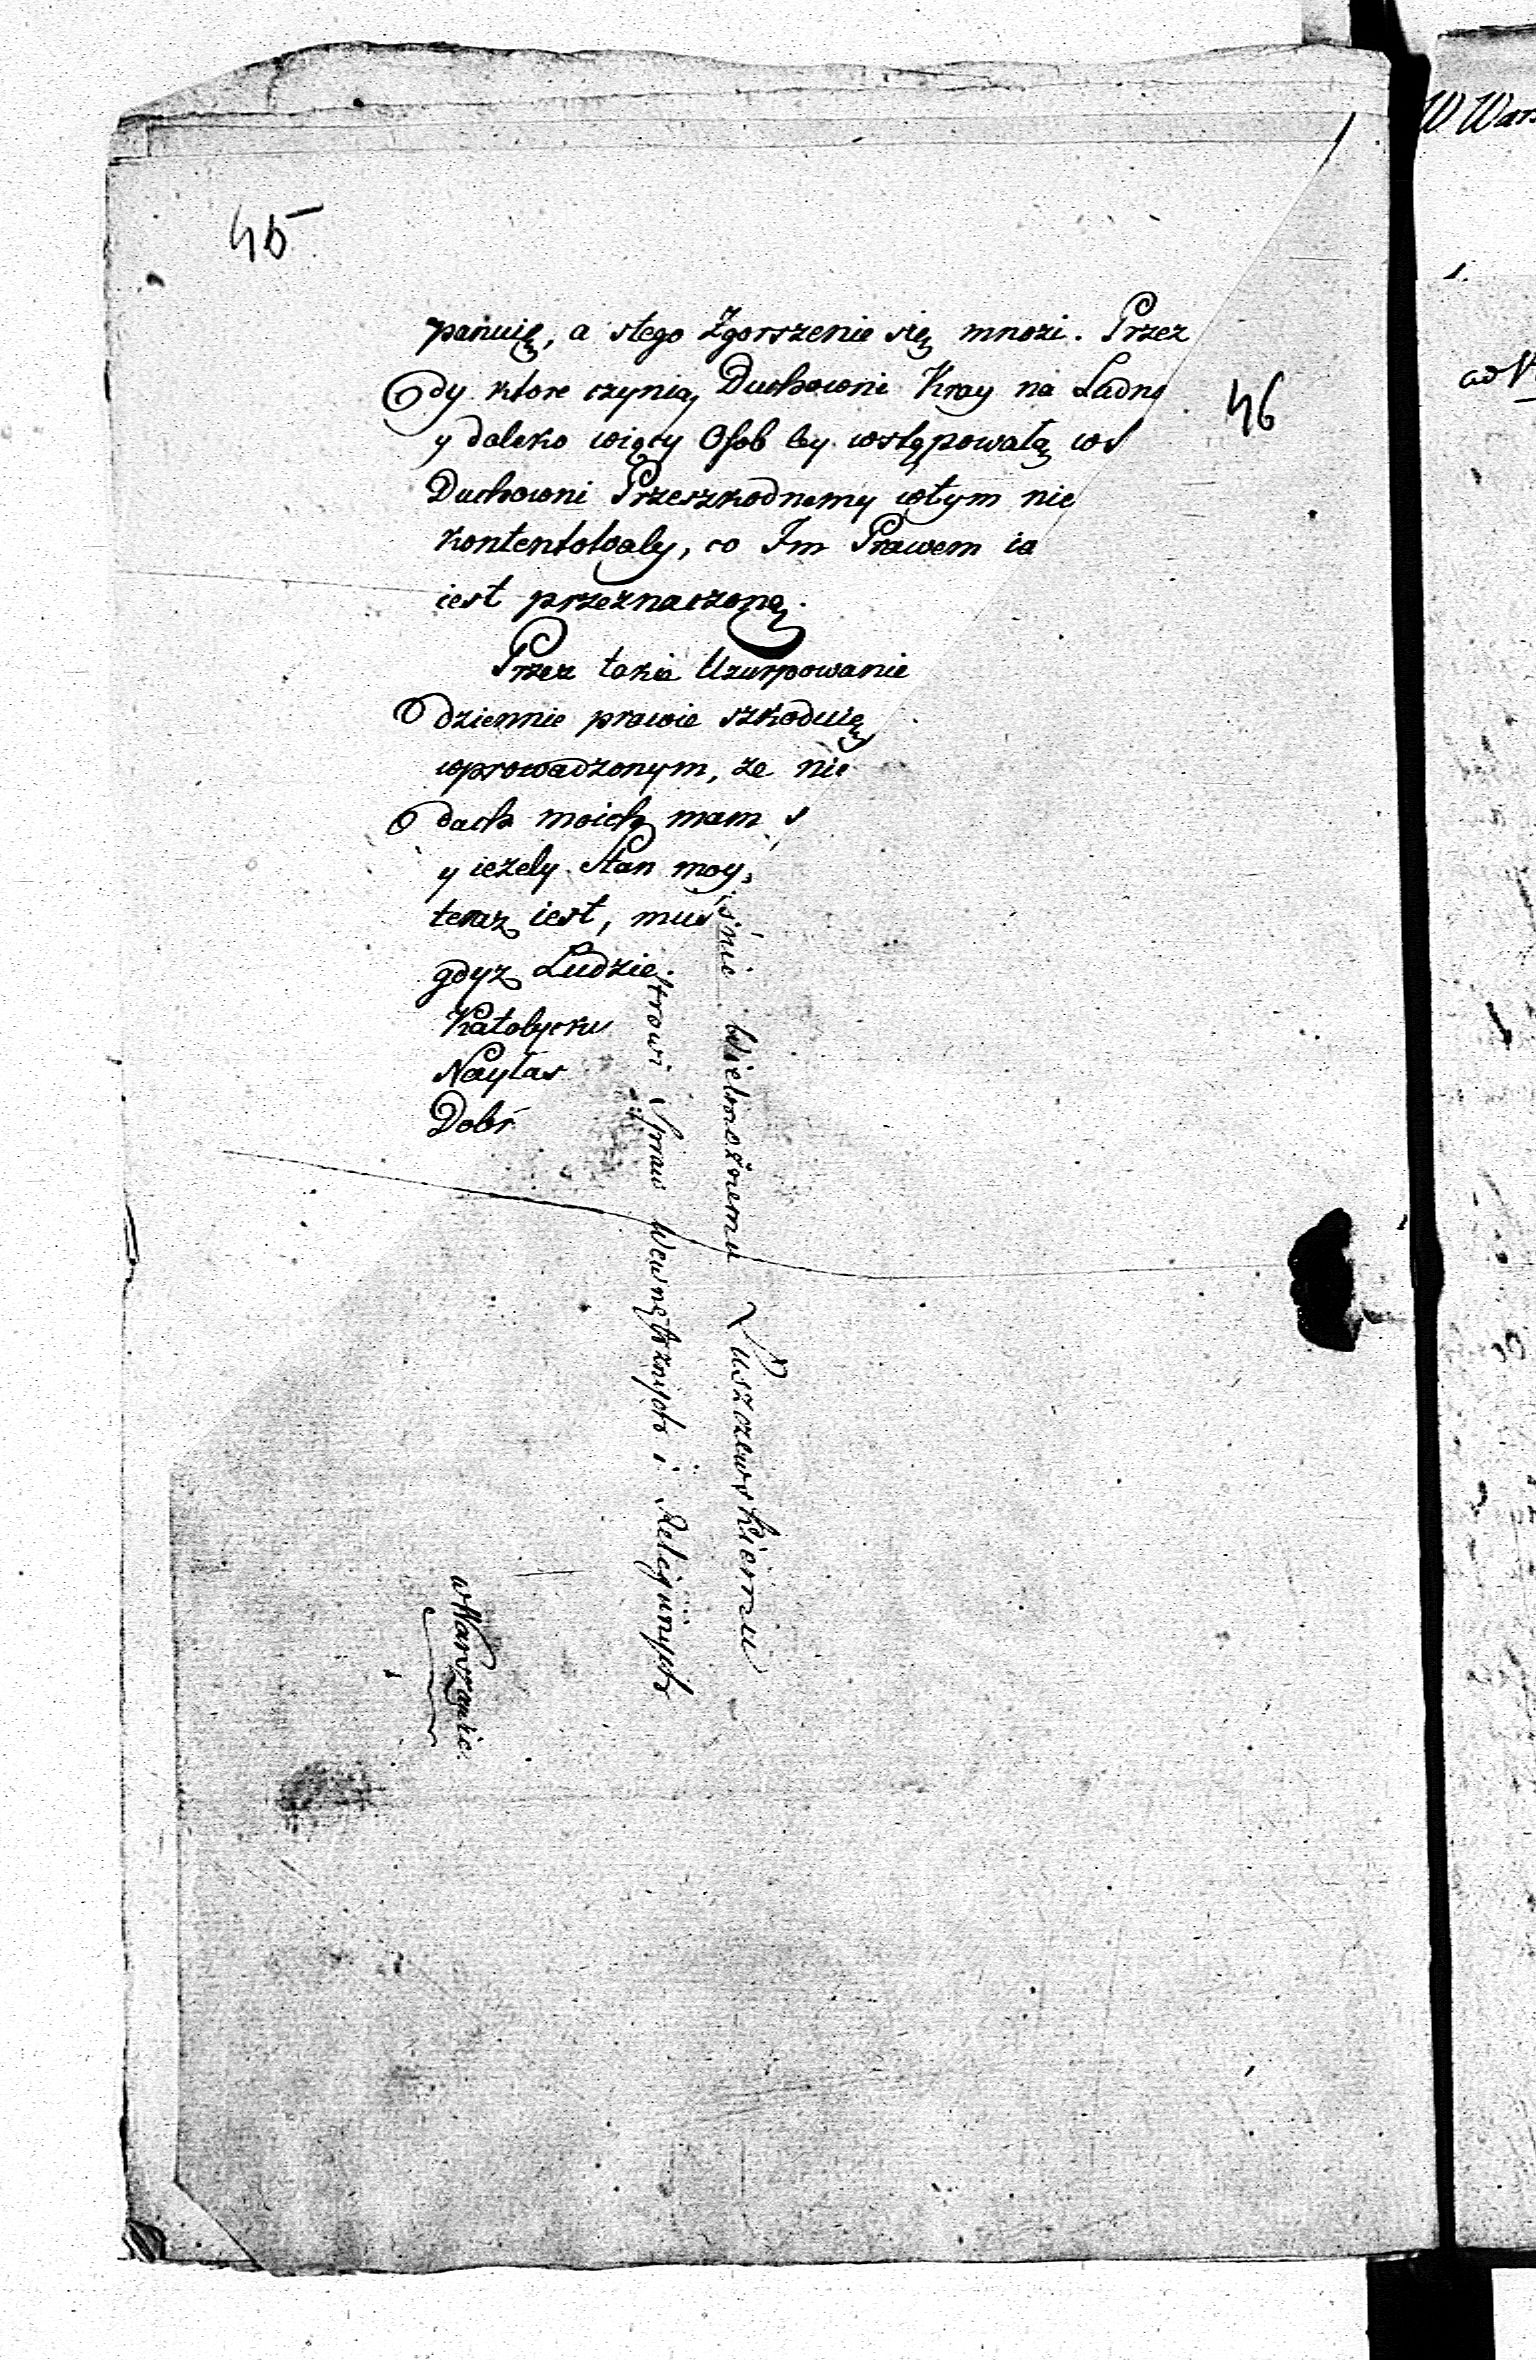 45
panuię, a stego Zgorszenie się mnozi. Przez
dy ktore czynią Duchowni Kray na Ludno
y daleko więcy Osob by wstępowałą w S
Duchowni Przeszkodnemy wtym nie
kontentowaly, co Im Prawem ia
iest przeznaczoną.
Przez takie Uzurpowanie
dziennie prawie szkoduię
wprowadzonym, ze nie
dach moich mam s
y iezely Stan moy,
teraz iest, mus
gdyz Ludzie
Katolycku
Nayłas
Dobr
46
śnie Wielmożnemu Łuszczewskiemu
strowi Spraw Wewnętrznych i Religijnych
w Warszawie.
W Wars
1.
ad N